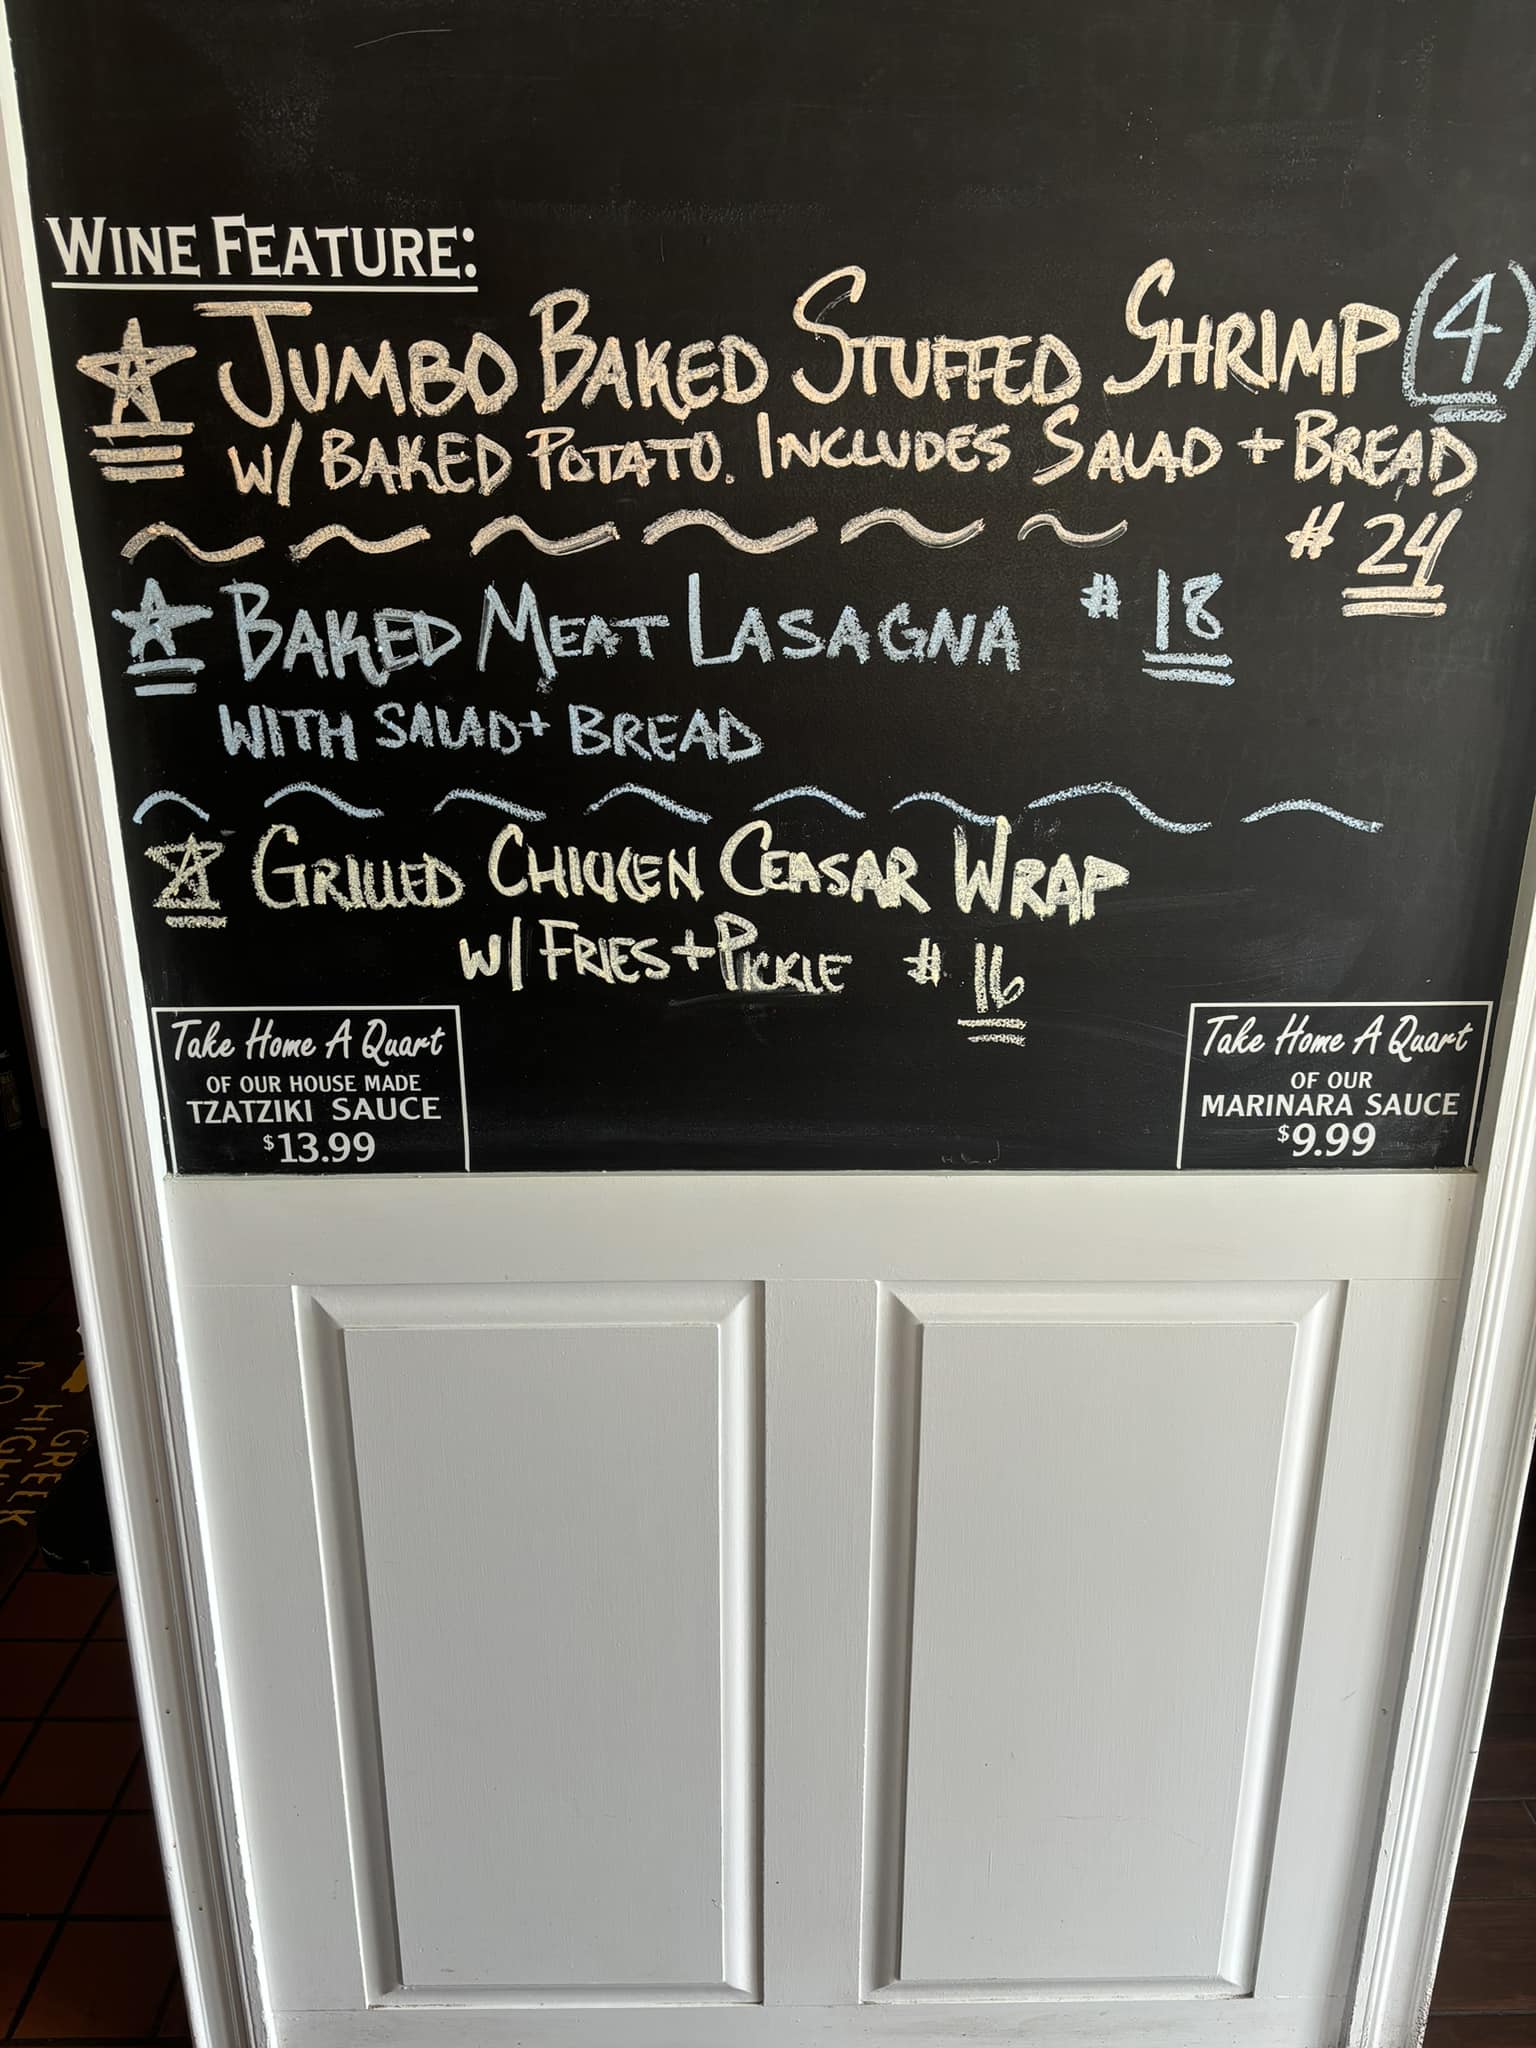 WINE FEATURE:
JUMBO BAKED STUFFED SHRIMP (4)
W/ BAKED POTATO. INCLUDES SALAD + BREAD
# 24
BAKED MEAT LASAGNA # 18
WITH SALAD + BREAD
GRILLED CHICKEN CEASAR WRAP
W/ FRIES + PICKLE # 16
Take Home A Quart
OF OUR HOUSE MADE
TZATZIKI SAUCE
$13.99
Take Home A Quart
OF OUR
MARINARA SAUCE
$9.99
GREEK
HIGH
NO